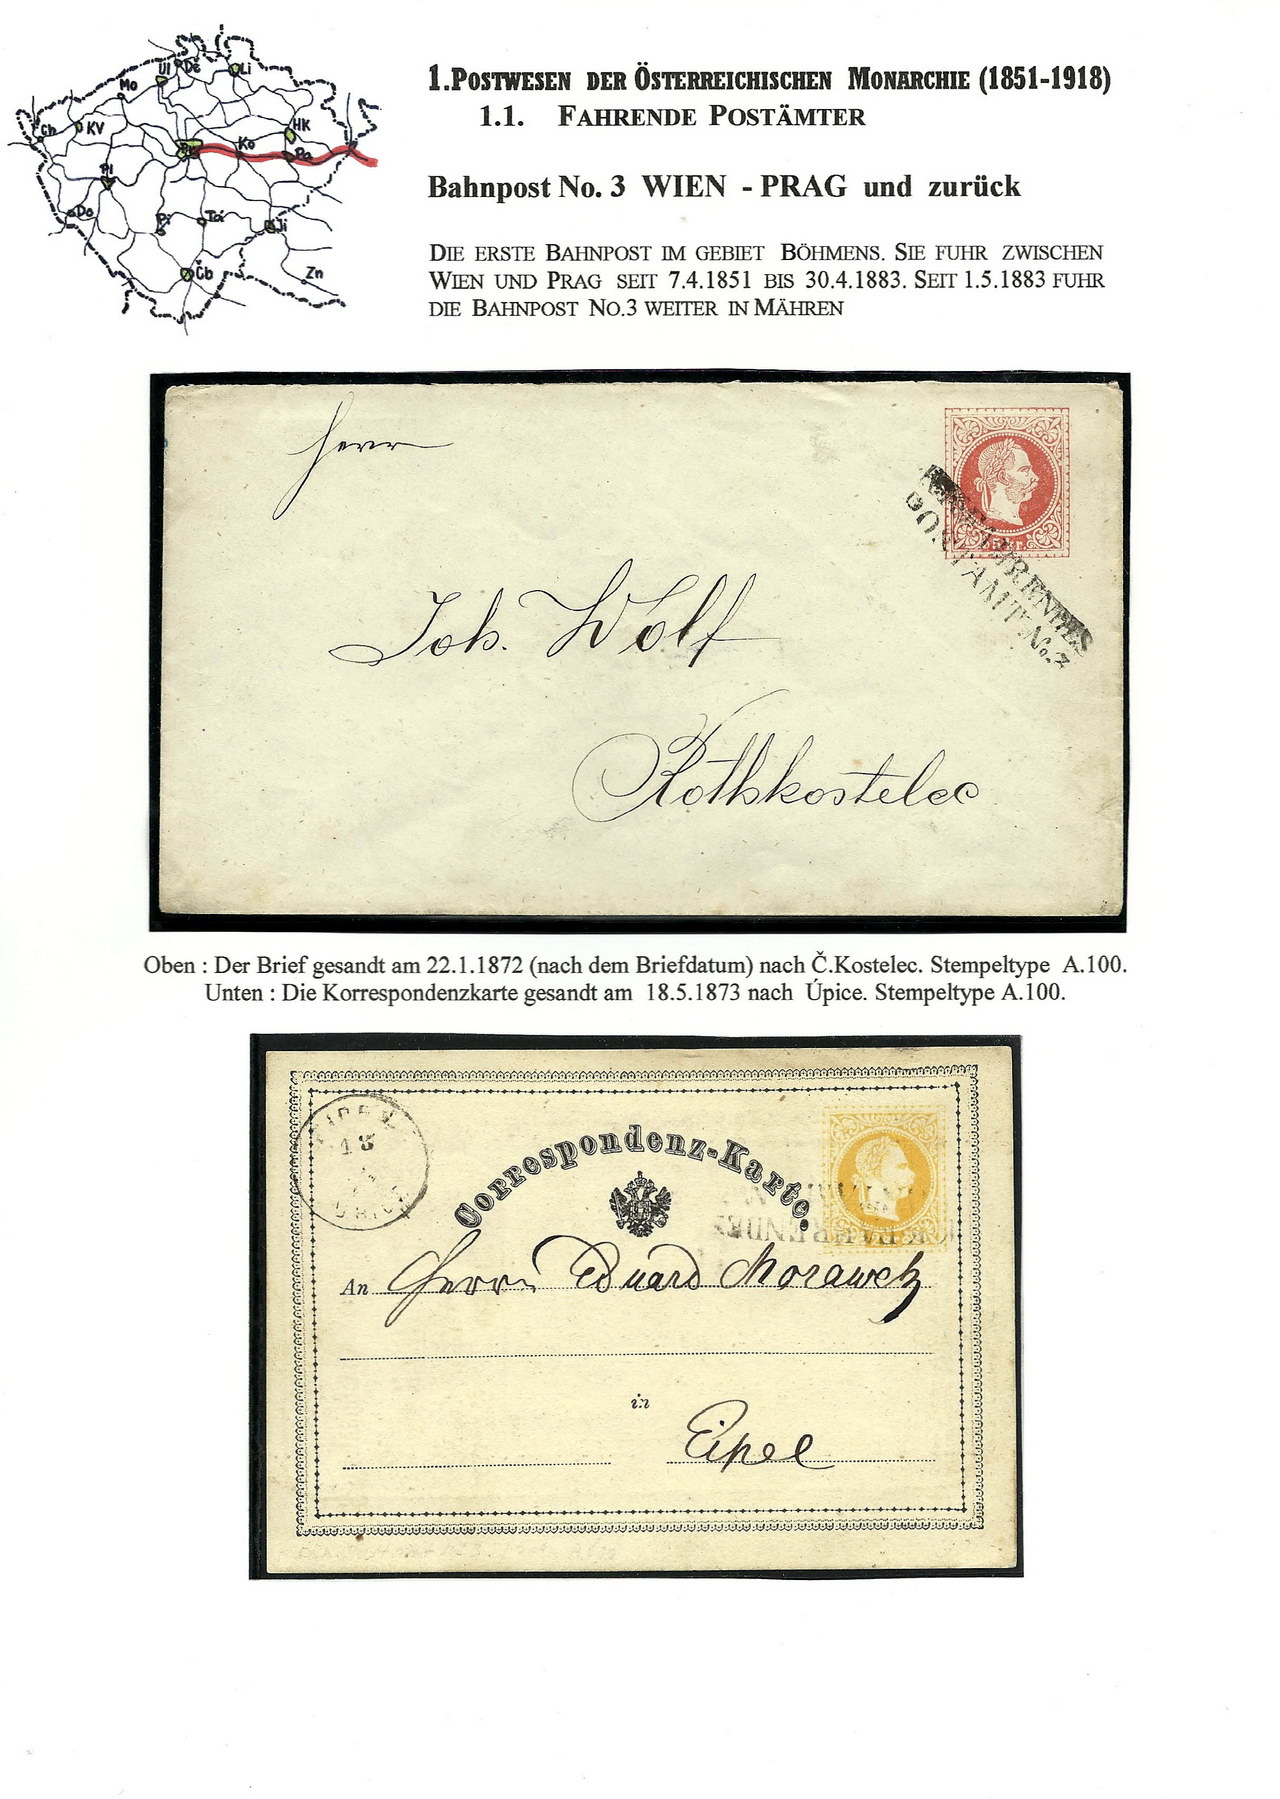 1.POSTWESEN DER ÖSTERREICHISCHEN MONARCHIE (1851-1918)
1.1. FAHRENDE POSTÄMTER
Bahnpost No. 3 WIEN - PRAG und zurück
DIE ERSTE BAHNPOST IM GEBIET BÖHMENS. SIE FUHR ZWISCHEN
WIEN UND PRAG SEIT 7.4.1851 BIS 30.4.1883. SEIT 1.5.1883 FUHR
DIE BAHNPOST NO.3 WEITER IN MÄHREN
Ul Dě Li
Mo
Ch KV HK
Pr Ko Pa
Pl
Do Pi Tá Ji
Čb Zn
Herr
Joh. Wolf
Rothkostelec
5 kr.
K.K. FAHRENDES
POSTAMT No. 3
Oben : Der Brief gesandt am 22.1.1872 (nach dem Briefdatum) nach Č.Kostelec. Stempeltype A.100.
Unten : Die Korrespondenzkarte gesandt am 18.5.1873 nach Úpice. Stempeltype A.100.
18
Correspondenz-Karte.
FAHRENDES
An Herrn Eduard Morawetz
in
Eipel